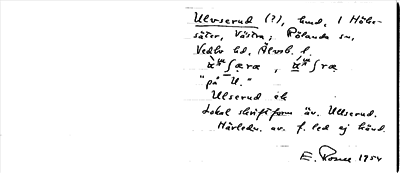 Ulvserud (?), hmd. i Höke-
säter, Västra; Rölanda sn,
Vedbo hd, Älvsb. l.
"på U."
Ulserud ek
Lokal skriftform äv. Ullserud.
Härledn. av f. led ej känd.
E. Rosell 1954